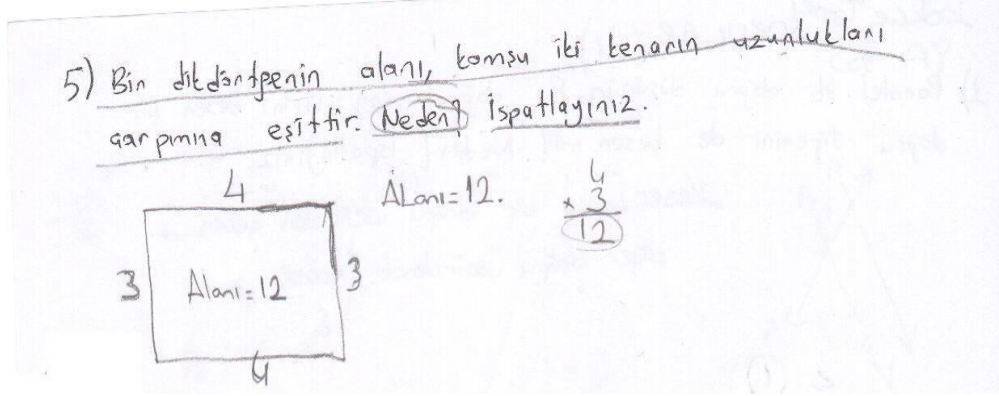 5) Bir dikdörtgenin alanı, komşu iki kenarın uzunlukları
çarpımına eşittir. Neden? İspatlayınız.
4
Alanı=12.
4
x 3
12
3
Alanı=12
3
4